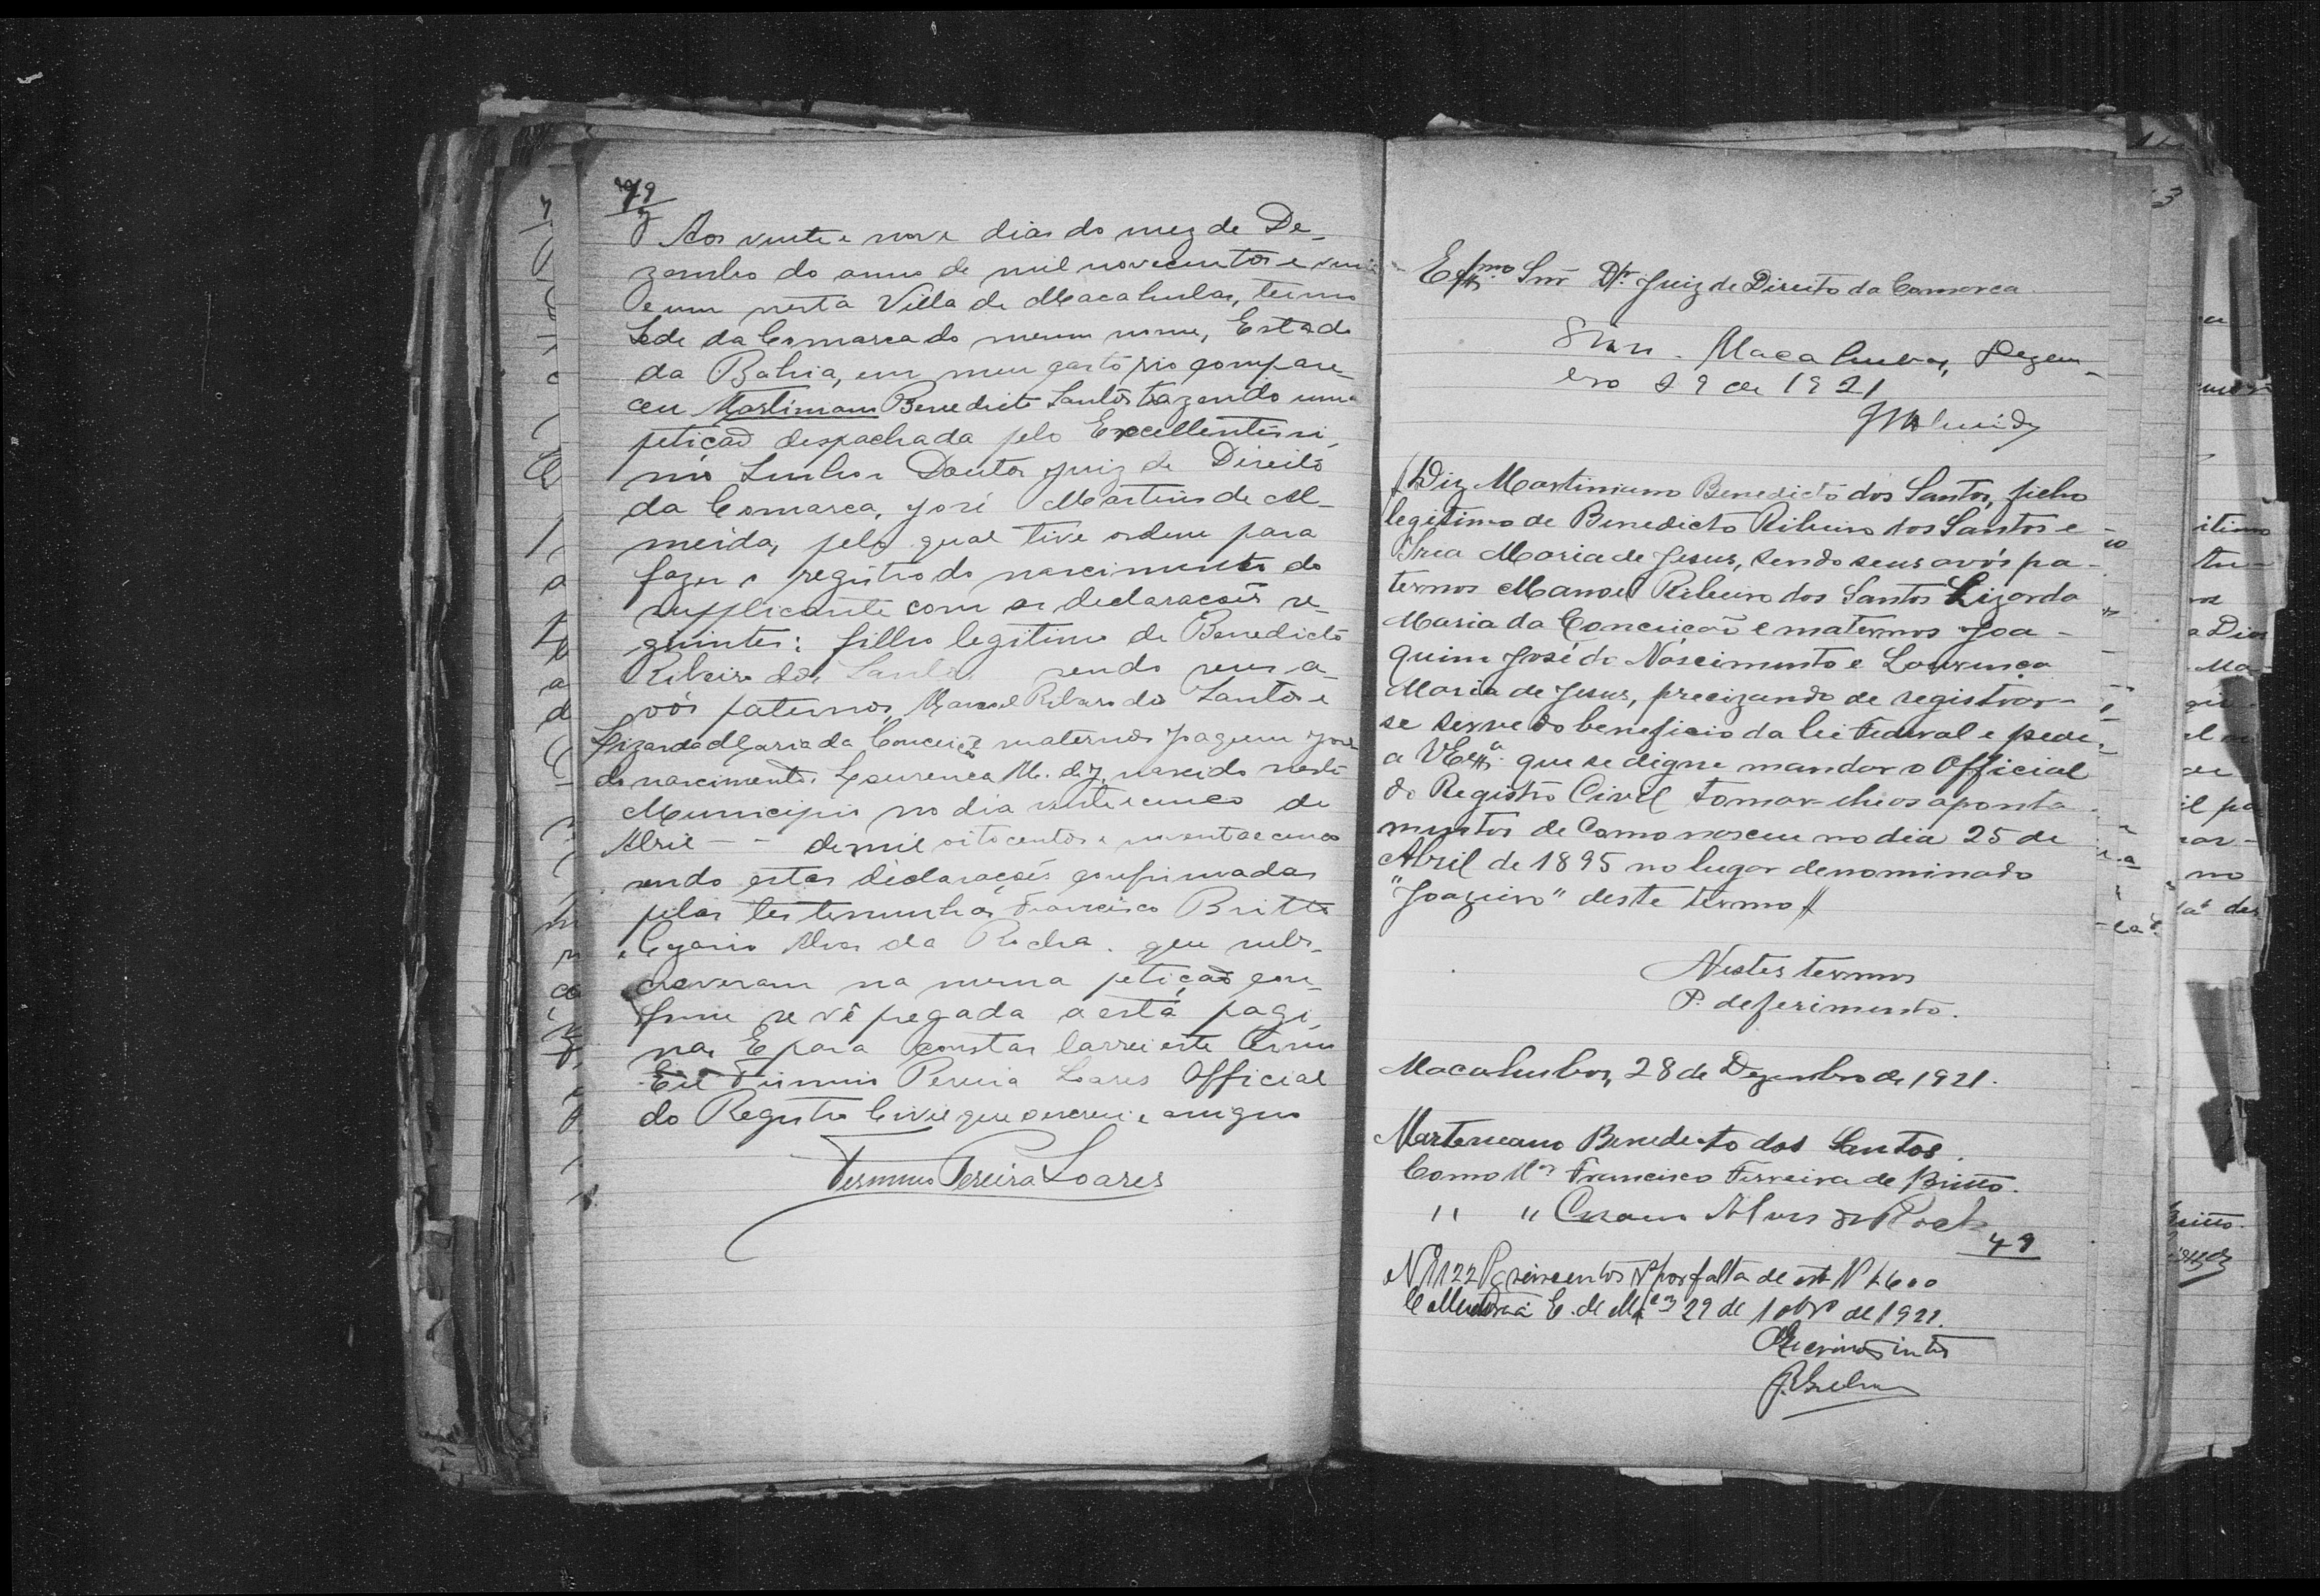 49
Aos vinte e nove dias do mez de De-
zembro do anno de mil novecentos e vinte
e um nesta Villa de Macahubas, termo
Séde da Comarca do mesmo nome, Estado
da Bahia, em meu cartorio compare-
ceu Martiniano Benedicto Santos trazendo uma
petição despachada pelo Excellentissi-
mo Senhor Doutor Juiz de Direito
da Comarca, José Martins de Al-
meida, pela qual tive ordem para
fazer o registro do nascimento do
supplicante com as declarações se-
guintes: filho legitimo de Benedicto
Ribeiro dos Santos sendo seus a-
vós paternos Manoel Ribeiro dos Santos e
Lizarda Maria da Conceição maternos Joaquim José
do nascimento e Lourença M. de J. nascido neste
Municipio no dia vinte e cinco de
Abril - - de mil oitocentos e noventa e cinco
sendo estas declarações confirmadas
pelas testemunhas Francisco Britto
e Cezario Alves da Rocha que subs-
creveram na mesma petição con-
forme se vê pregada a está pagi-
na. E para constar lavrei este termo
Eu Firmino Pereira Soares Official
do Registro Civil que escrevi e assigno
Firmino Pereira Soares
Exmo Snr Dr. Juiz de Direito da Comarca
Sim. Macahubas, Dezem-
bro 29 de 1921
JMAlmeida
Diz Martiniano Benedicto dos Santos, filho
legitimo de Benedicto Ribeiro dos Santos e
Iria Maria de Jesus, sendo seus avós pa-
ternos Manoel Ribeiro dos Santos Lizarda
Maria da Conceição e maternos Joa-
quim José do Nascimento e Lourença
Maria de Jesus, precizando de registrar-
se serve do beneficio da lei Federal e pede
a VExa. que se digne mandar o Official
do Registro Civil tomar-lhe os aponta
mentos de como nasceu no dia 25 de
Abril de 1895 no lugar denominado
"Joazeiro" deste termo
Nestes termos
P. deferimento.
Macahubas, 28 de Dezembro de 1921.
Marteneano Benedicto dos Santos.
Como tta Francisco Ferreira de Britto.
" " Cezario Alves da Rocha
49
N 1122 Pg seiscentos rs por falta de est N \ 600
E. de 29 de 10bro de 1921.